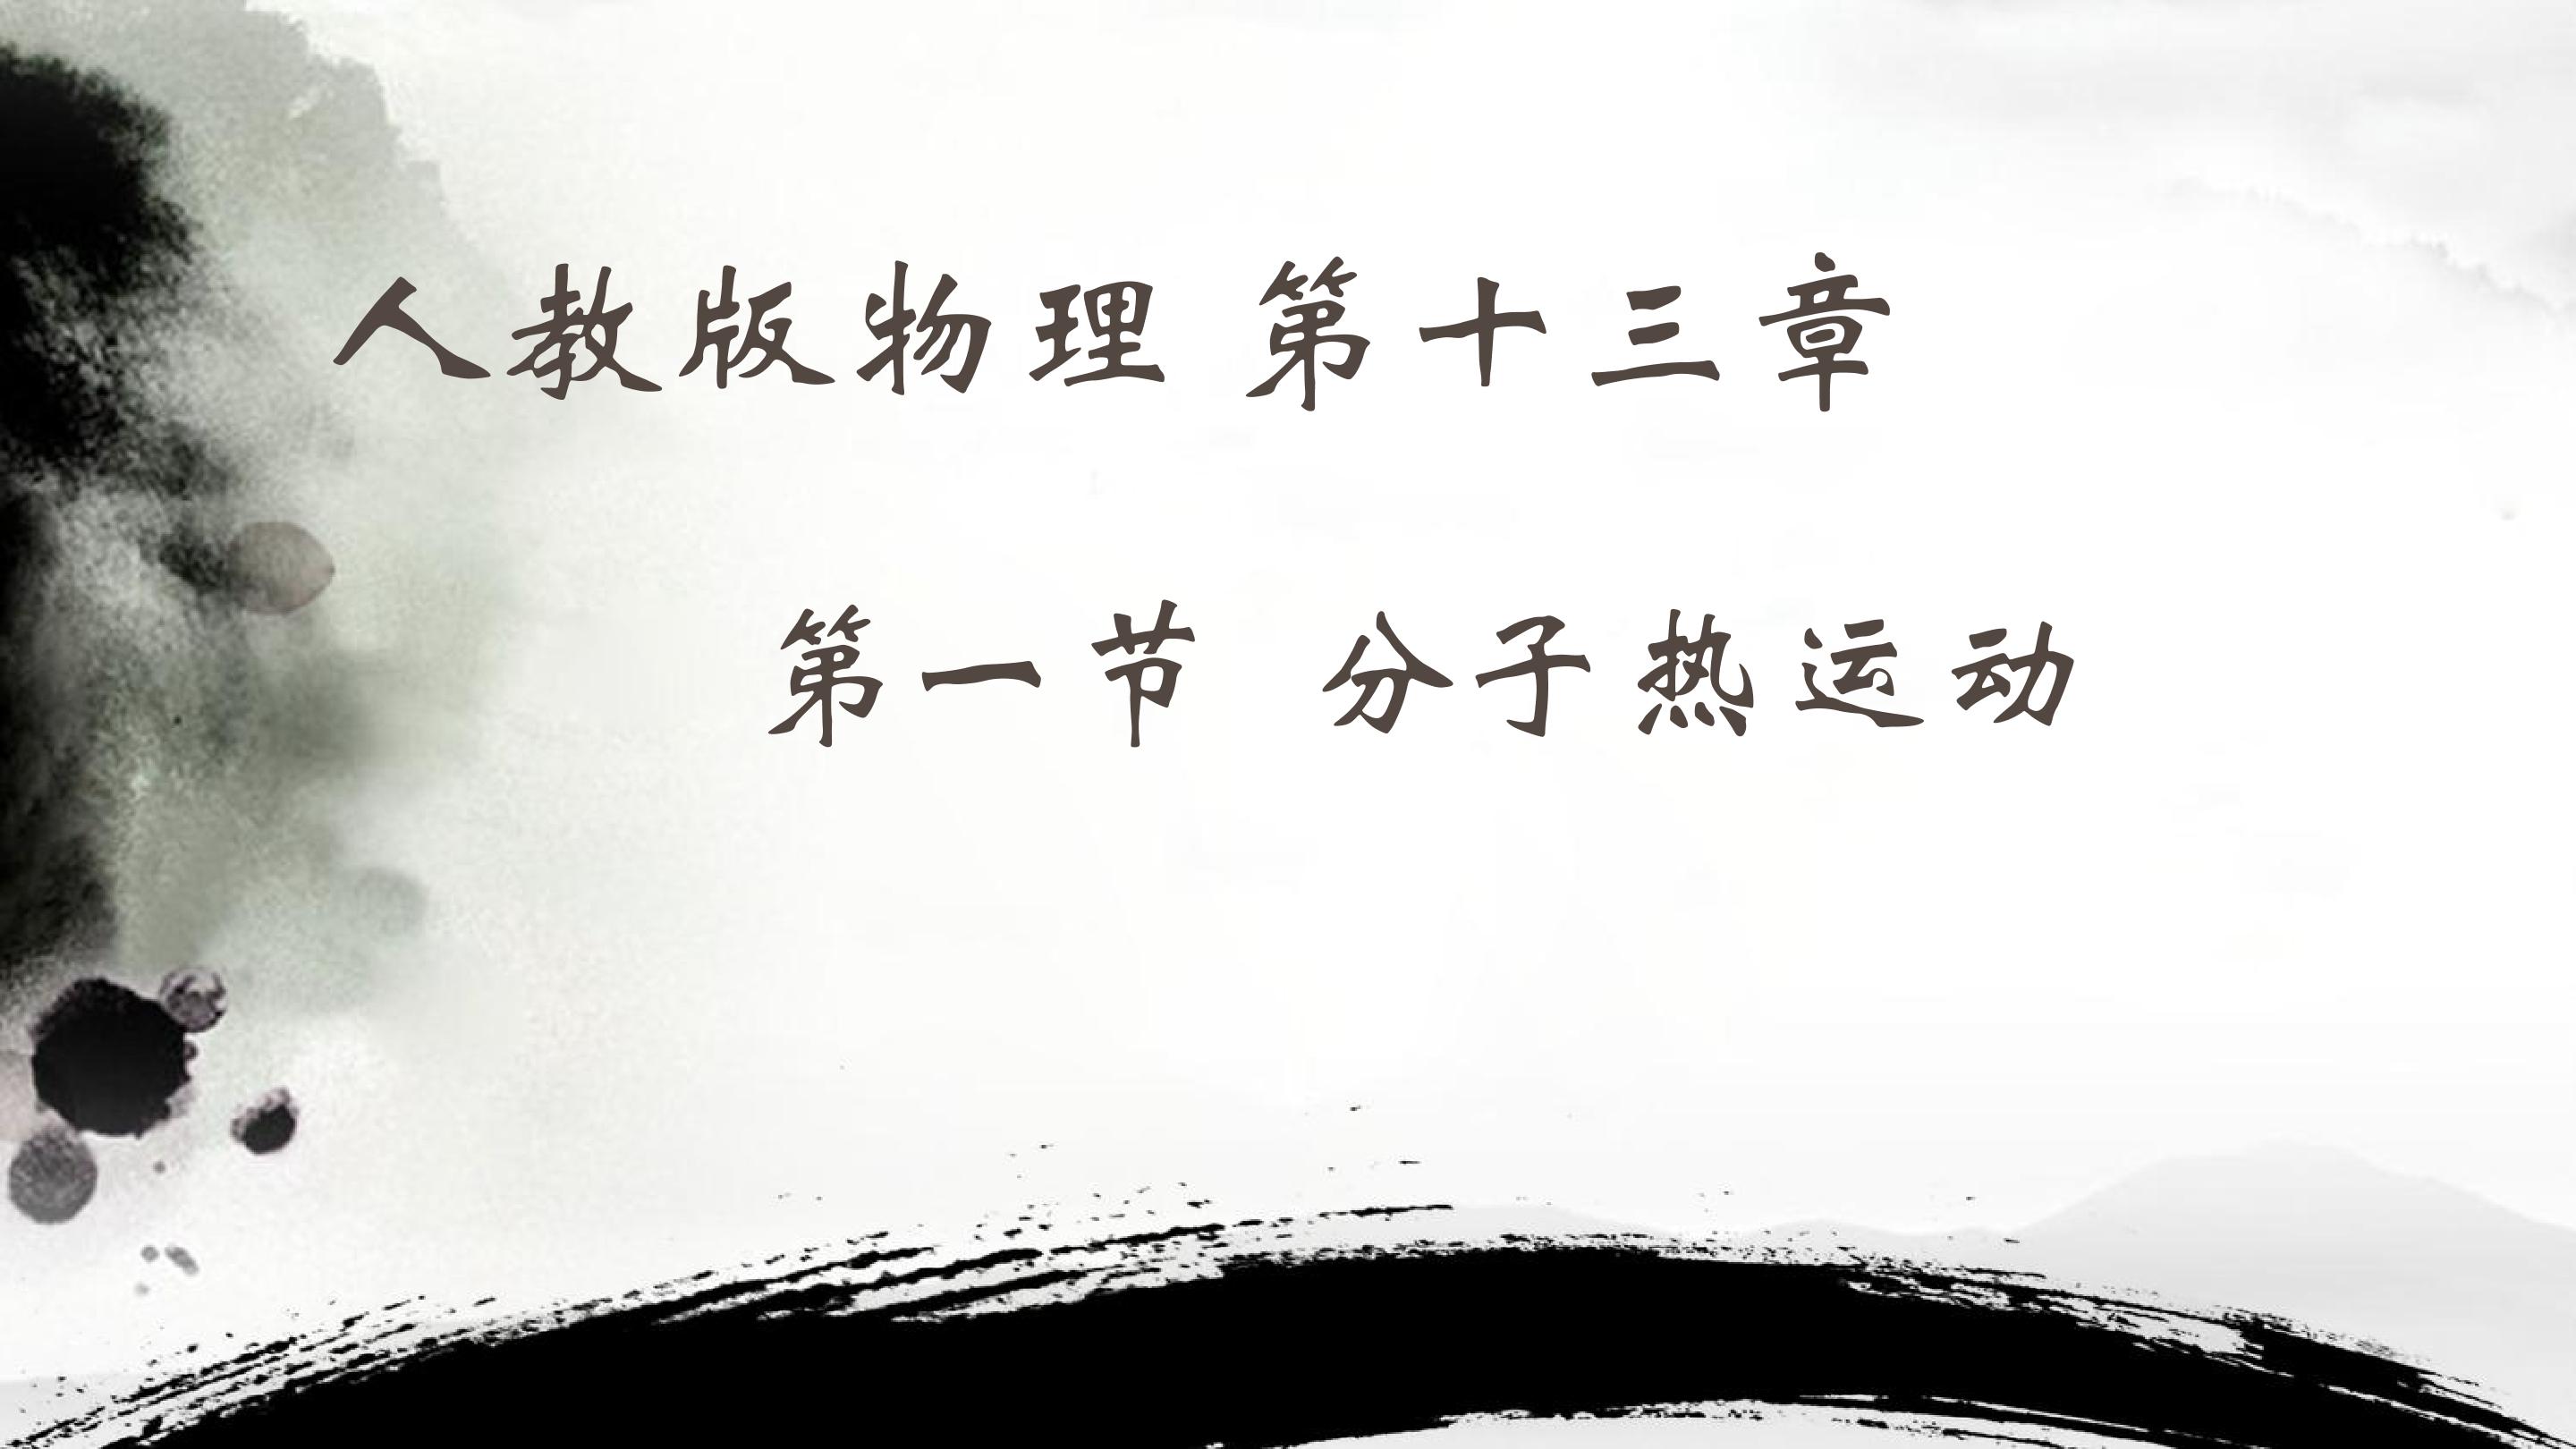 人教版物理 第十三章
第一节 分子热运动